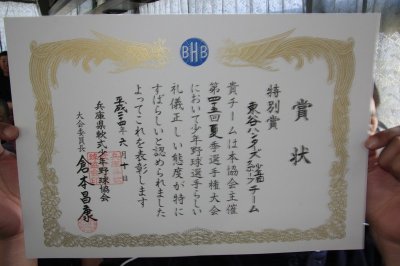 BHB
賞状
特別賞
東谷ハンターズ
チーム
貴チームは本協会主催
第四五回夏季選手権大会
において少年野球選手らしい
礼儀正しい態度が特に
すばらしいと認められました
よってこれを表彰します
平成二四年六月十日
兵庫県軟式少年野球協会
大会委員長 倉本昌康